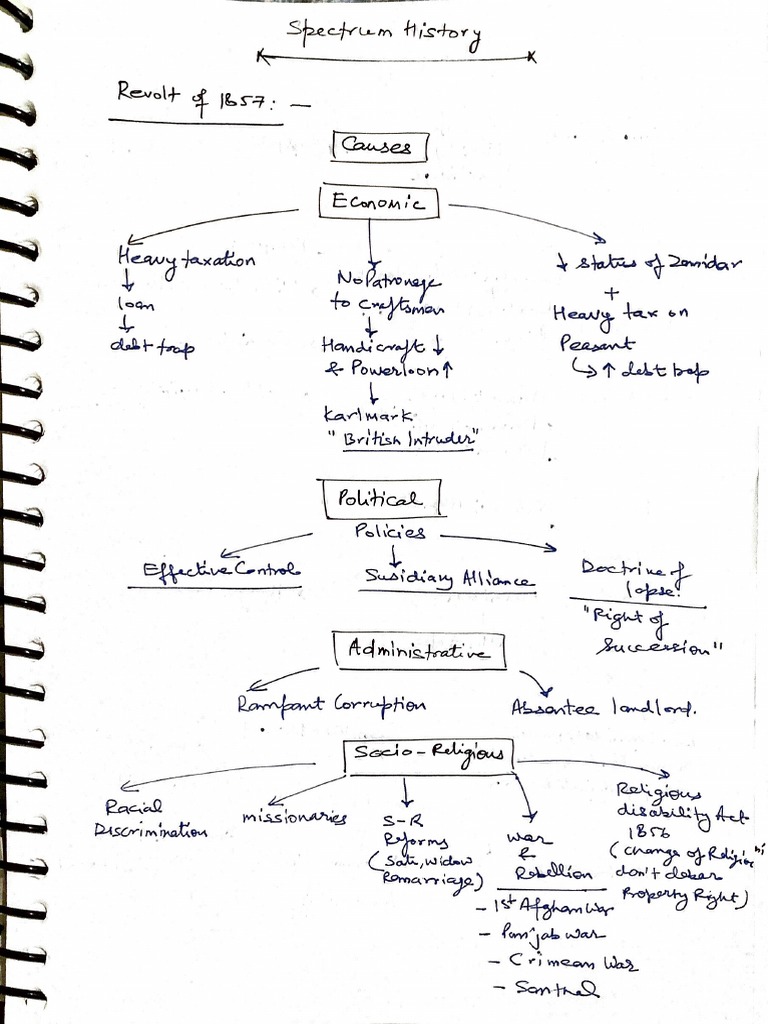 Spectrum History
Revolt of 1857: —
Causes
Economic
Heavy taxation
↓
loan
↓
debt trap
No Patronage
to craftsmen
↓
Handicraft ↓
& Powerloon ↑
↓
Karlmark
"British Intruder"
↓ status of Zamidar
+
Heavy tax on
Peasant
↳ ↑ debt trap
Political
Policies
Effective Control
Susidiary Alliance
Doctrine of
lapse:
"Right of
Succession"
Administrative
Rampant Corruption
Absentee landlord.
Socio-Religious
Racial
Discrimination
missionaries
S-R
Reforms
(Sati, widow
Remarriage)
War
&
Rebellion
- 1st Afghan War
- Punjab War
- Crimean War
- Santhal
Religious
disability Act
1856
(change of Religion
don't debar
Property Right)